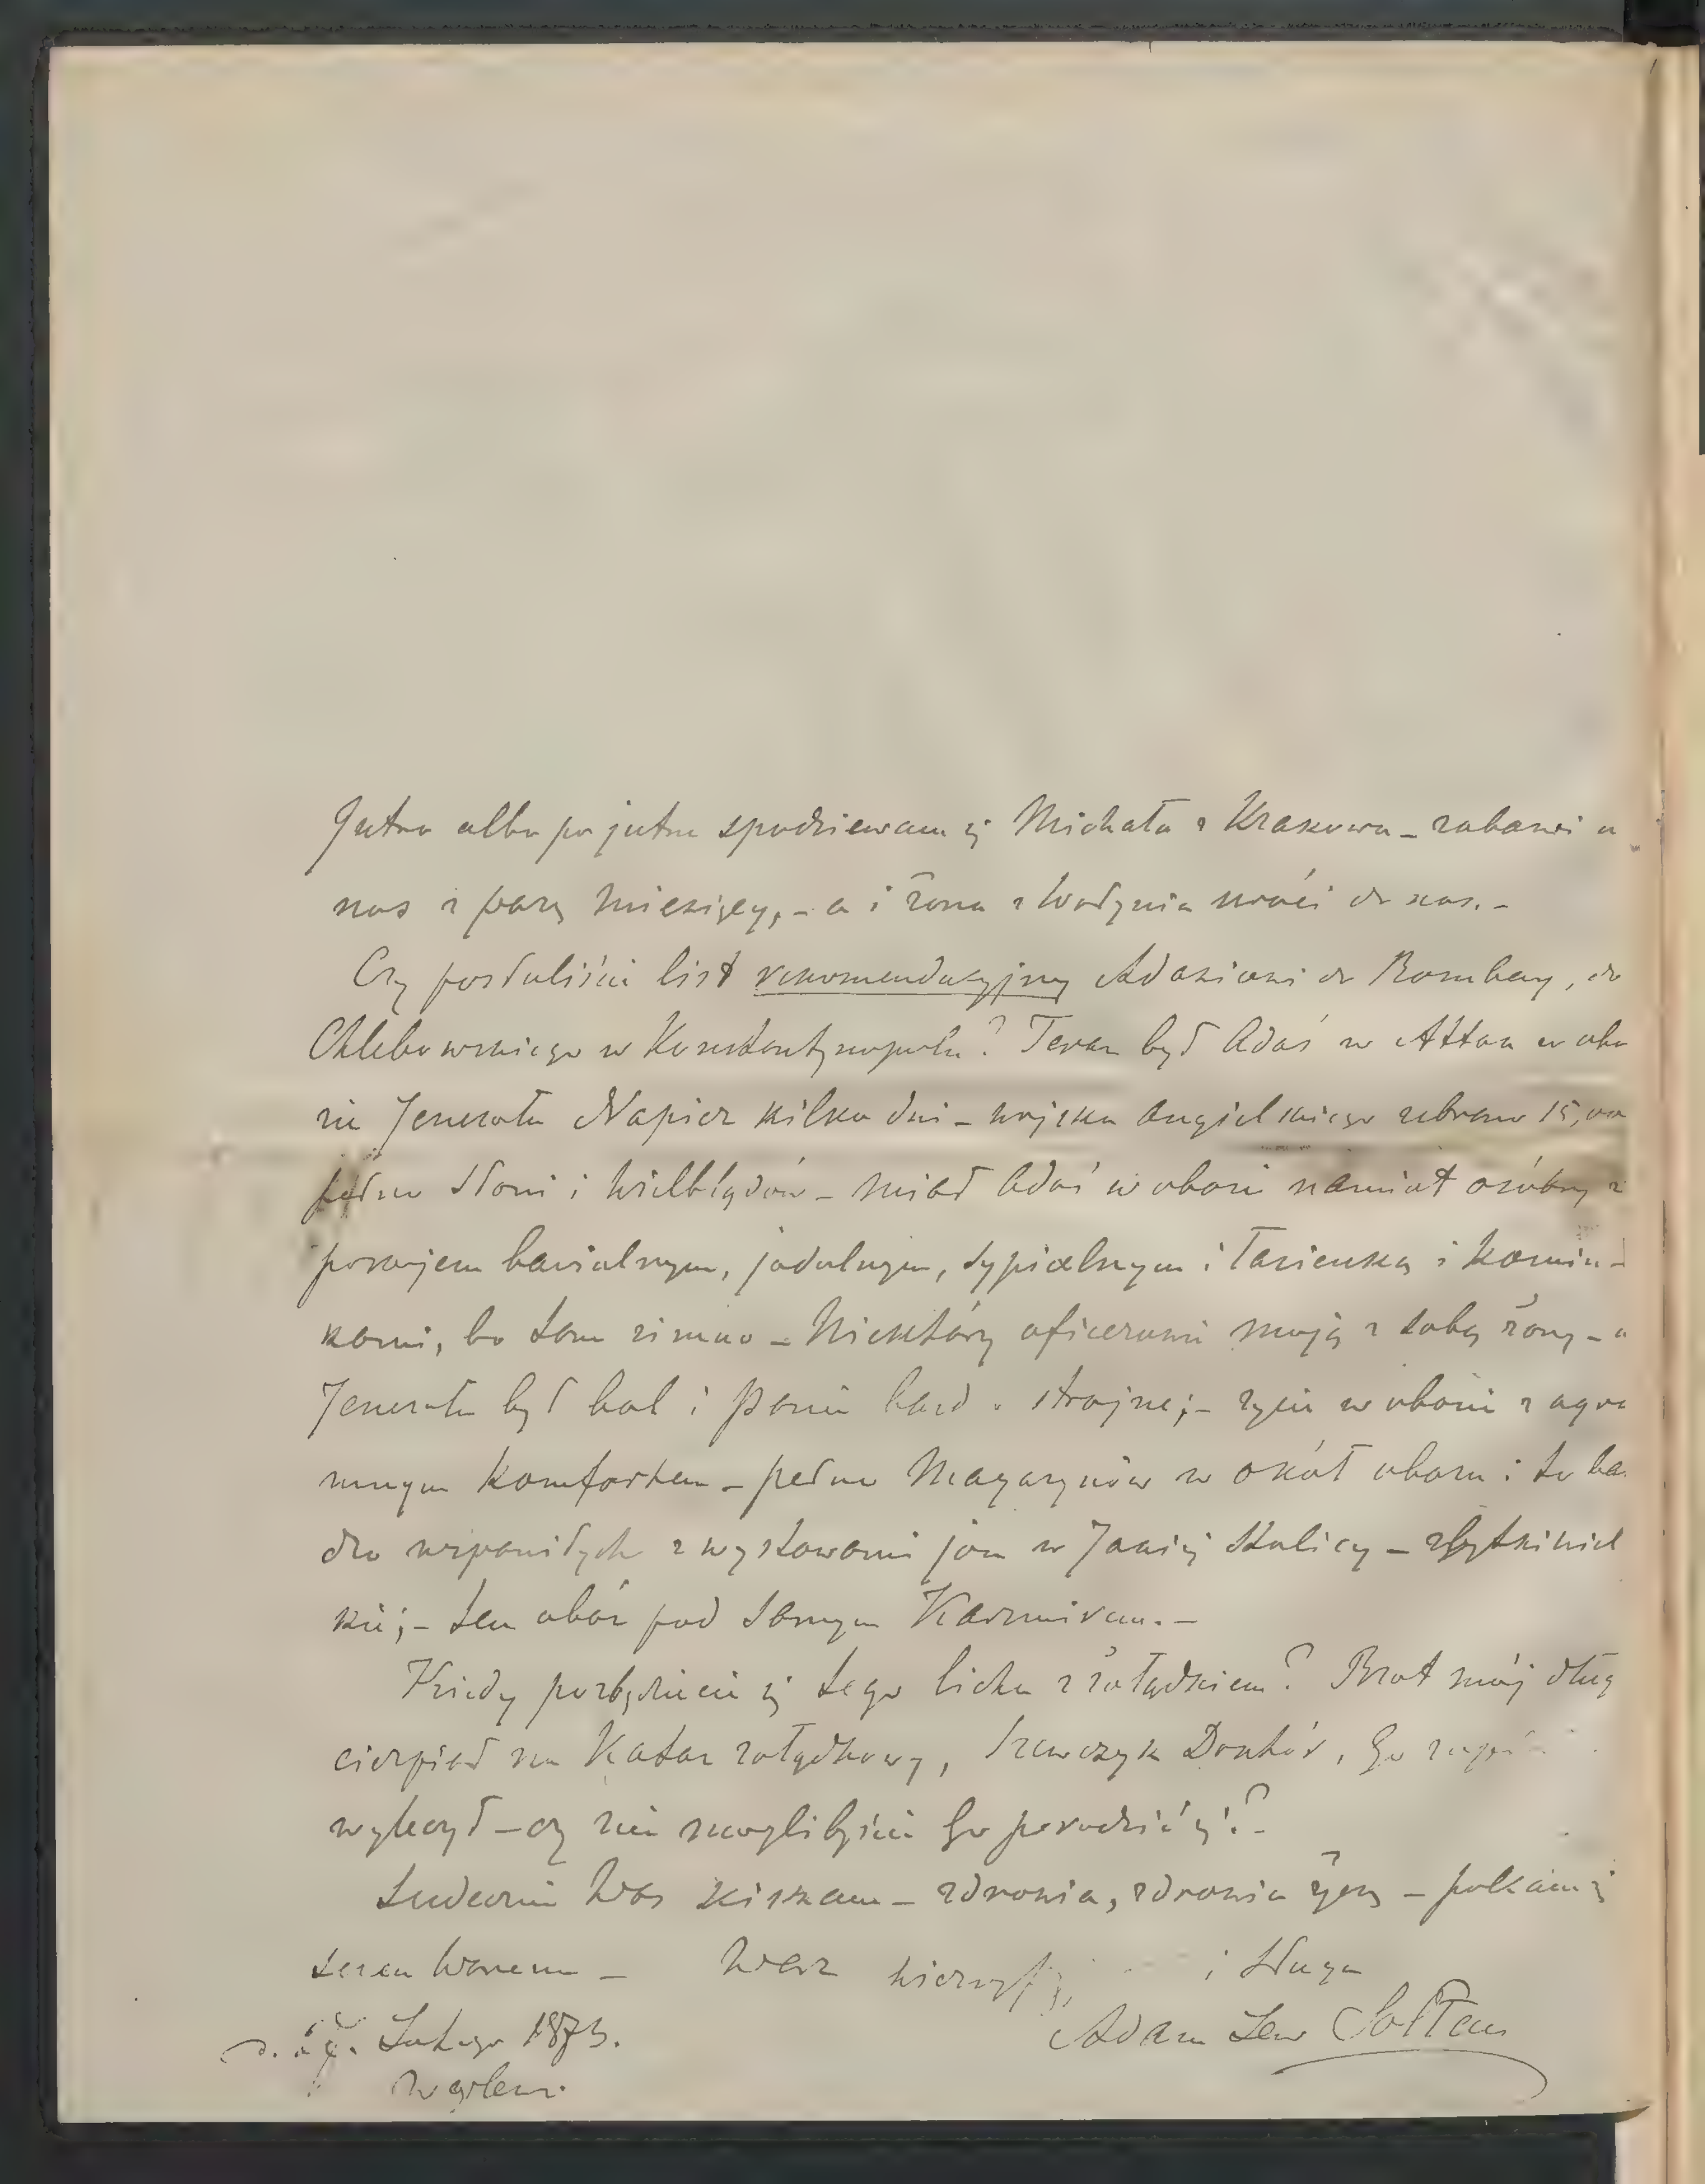 Jutro albo po jutru spodziewam się Michała z Krakowa – zabawi u
nas z parę miesięcy, – a i żona z Wołynia wróci do nas. –
Czy posłaliście list rekomendacyjny Adasiowi do Bombay, do
Chlebowskiego w Konstantynopolu? Teraz był Adaś w Attok w obo
zie Jenerała Napier kilka dni – wojska angielskiego zebrano 15,000
pełno słoni i wielbłądów – miał Adaś w obozie namiot osóbny z
pokojem bawialnym, jadalnym, sypialnym i łazienką i komin-
kami, bo tam zimno – Niektórzy oficerowie mają z sobą żony – u
Jenerała był bal i panie bard. strojne; – życie w obozie z ogro
mnym komfortem – pełno Magazynów w okół obozu i to ba
dzo wspaniałych z wystawami jak w Jakiéj stolicy – zbytki wiel
kie; – ten obóz pod samym Kaszmirem. –
Kiedy pozbędziecie się tego licha z żołądkiem? Brat mój dług
cierpiał na Katar żołądkowy, Szewczyk Doktór, Go
wyleczył – czy nie moglibyście Go poradzić się? –
Serdecznie Was ściskam – zdrowia, zdrowia życzę – polecam się
sercu Waszemu – Wasz i Sługa
Lutego 1873. Adam Lew Sołtan